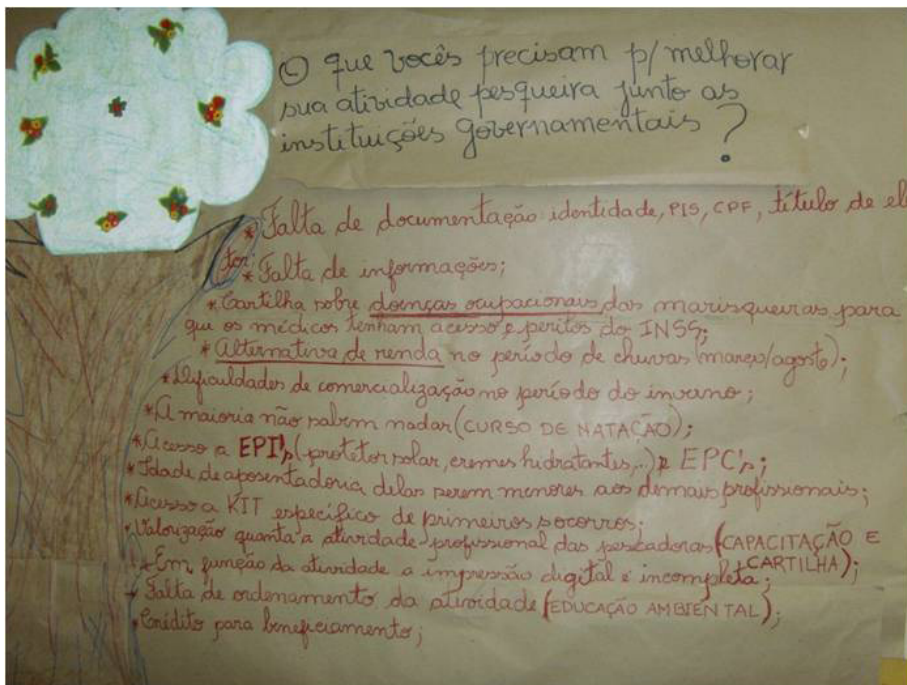 O que vocês precisam p/ melhorar
sua atividade pesqueira junto as
instituições governamentais?
*Falta de documentação identidade, PIS, CPF, título de elei
tor;
*Falta de informações;
*Cartilha sobre doenças ocupacionais das marisqueiras para
que os médicos tenham acesso e peritos do INSS;
*Alternativa de renda no período de chuvas (março/agosto);
*Dificuldades de comercialização no período do inverno;
*A maioria não sabem nadar (CURSO DE NATAÇÃO);
*Acesso a EPI's (protetor solar, cremes hidratantes,...) e EPC's;
*Idade de aposentadoria delas serem menores aos demais profissionais;
*Acesso a KIT específico de primeiros socorros;
*Valorização quanta a atividade profissional das pescadoras (CAPACITAÇÃO E
CARTILHA);
*Em função da atividade a impressão digital é incompleta;
*Falta de ordenamento da atividade (EDUCAÇÃO AMBIENTAL);
*Crédito para beneficiamento;